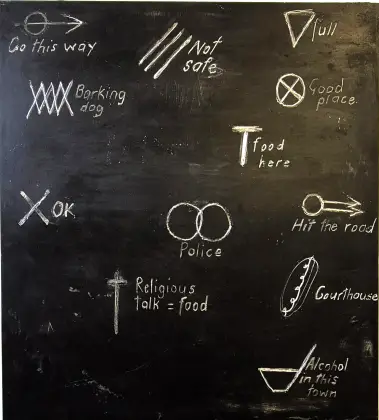 Go this way
Not
safe
full
Barking
dog
Good
place
food
here
OK
Police
Hit the road
Religious
talk = food
Courthouse
Alcohol
in this
town